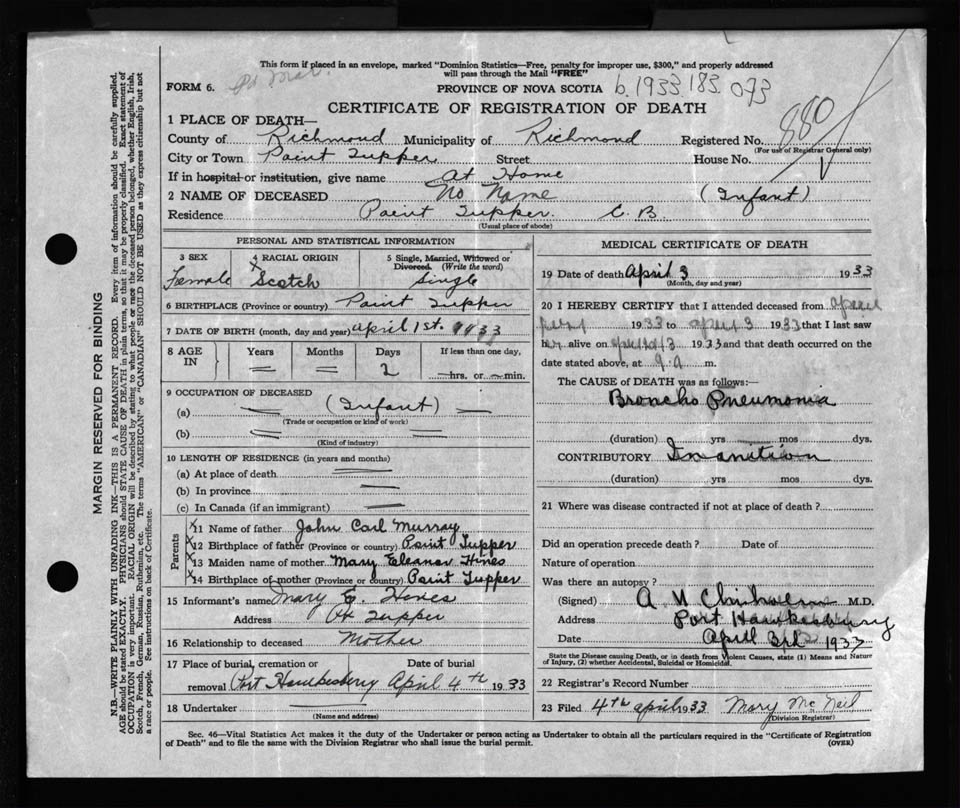 This form if placed in an envelope, marked "Dominion Statistics—Free, penalty for improper use, $300," and properly addressed
will pass through the Mail "FREE"
FORM 6.
PROVINCE OF NOVA SCOTIA b.1933.183.093
CERTIFICATE OF REGISTRATION OF DEATH
880
1 PLACE OF DEATH—
County of Richmond Municipality of Richmond Registered No.
(For use of Registrar General only)
City or Town Point Tupper Street House No.
If in hospital or institution, give name At Home
2 NAME OF DECEASED No Name (Infant)
Residence Point Tupper. C.B.
(Usual place of abode)
PERSONAL AND STATISTICAL INFORMATION
3 SEX 4 RACIAL ORIGIN 5 Single, Married, Widowed or
Divorced. (Write the word)
Female Scotch Single
6 BIRTHPLACE (Province or country) Point Tupper
7 DATE OF BIRTH (month, day and year) April 1st. 1933
8 AGE IN Years Months Days If less than one day,
2 hrs. or min.
9 OCCUPATION OF DECEASED
(a) (Infant)
(Trade or occupation or kind of work)
(b)
(Kind of industry)
10 LENGTH OF RESIDENCE (in years and months)
(a) At place of death
(b) In province
(c) In Canada (if an immigrant)
Parents
11 Name of father John Carl Murray
12 Birthplace of father (Province or country) Point Tupper
13 Maiden name of mother Mary Eleanor Hines
14 Birthplace of mother (Province or country) Point Tupper
15 Informant's name Mary E. Hines
Address Pt Tupper
16 Relationship to deceased Mother
17 Place of burial, cremation or Date of burial
removal Port Hawkesbury April 4th 1933
18 Undertaker
(Name and address)
MEDICAL CERTIFICATE OF DEATH
19 Date of death April 3 1933
(Month, day and year)
20 I HEREBY CERTIFY that I attended deceased from April
1933 to April 3 1933 that I last saw
her alive on 3 1933 and that death occurred on the
date stated above, at 9 a m.
The CAUSE OF DEATH was as follows:—
Broncho Pneumonia
(duration) yrs mos dys.
CONTRIBUTORY Inanition
(duration) yrs mos dys.
21 Where was disease contracted if not at place of death?
Did an operation precede death? Date of
Nature of operation
Was there an autopsy?
(Signed) A M Chisholm M.D.
Address Port Hawkesbury
Date April 3rd 1933
State the Disease causing Death, or in death from Violent Causes, state (1) Means and Nature
of Injury, (2) whether Accidental, Suicidal or Homicidal.
22 Registrar's Record Number
23 Filed 4th April 1933 Mary McNeil
(Division Registrar)
Sec. 46—Vital Statistics Act makes it the duty of the Undertaker or person acting as Undertaker to obtain all the particulars required in the "Certificate of Registration
of Death" and to file the same with the Division Registrar who shall issue the burial permit.
(OVER)
MARGIN RESERVED FOR BINDING
N.B.—WRITE PLAINLY WITH UNFADING INK—THIS IS A PERMANENT RECORD. Every item of information should be carefully supplied.
AGE should be stated EXACTLY. PHYSICIANS should STATE CAUSE OF DEATH in plain terms, so that it may be properly classified. Exact statement of
OCCUPATION is very important. RACIAL ORIGIN will be described by stating to what people or race the deceased person belonged, whether English, Irish,
Scotch, French, German, Russian, Ruthenian, etc. The terms "AMERICAN" or "CANADIAN" SHOULD NOT BE USED as they express citizenship but not
a race or people. See instructions on back of Certificate.